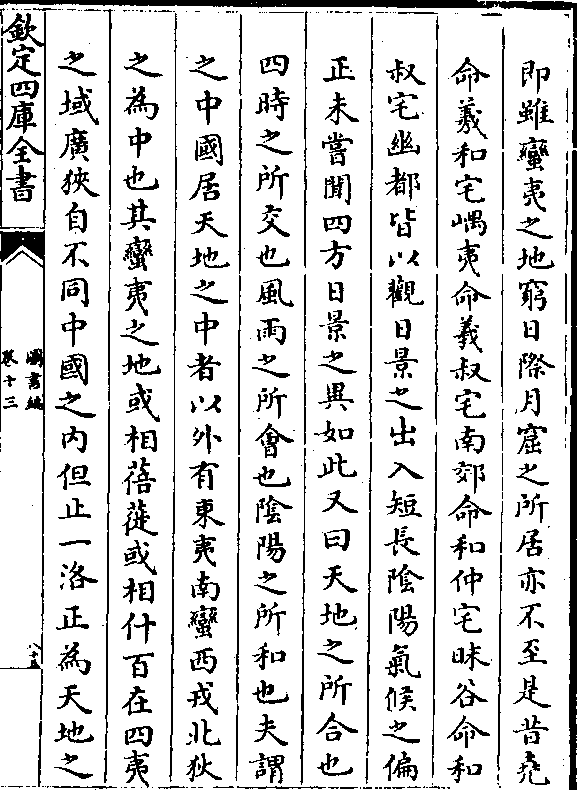 即雖蠻夷之地窮日際月窟之所居亦不至是昔堯
命羲和宅嵎夷命羲叔宅南郊命和仲宅昧谷命和
叔宅幽都皆以觀日景之出入短長陰陽氣候之偏
正未嘗聞四方日景之異如此又曰天地之所合也
四時之所交也風雨之所會也陰陽之所和也夫謂
之中國居天地之中者以外有東夷南蠻西戎北狄
之為中也其蠻夷之地或相蓓蓰或相什百在四夷
之域廣狹自不同中國之內但止一洛正為天地之
欽定四庫全書
圖書編
卷十三